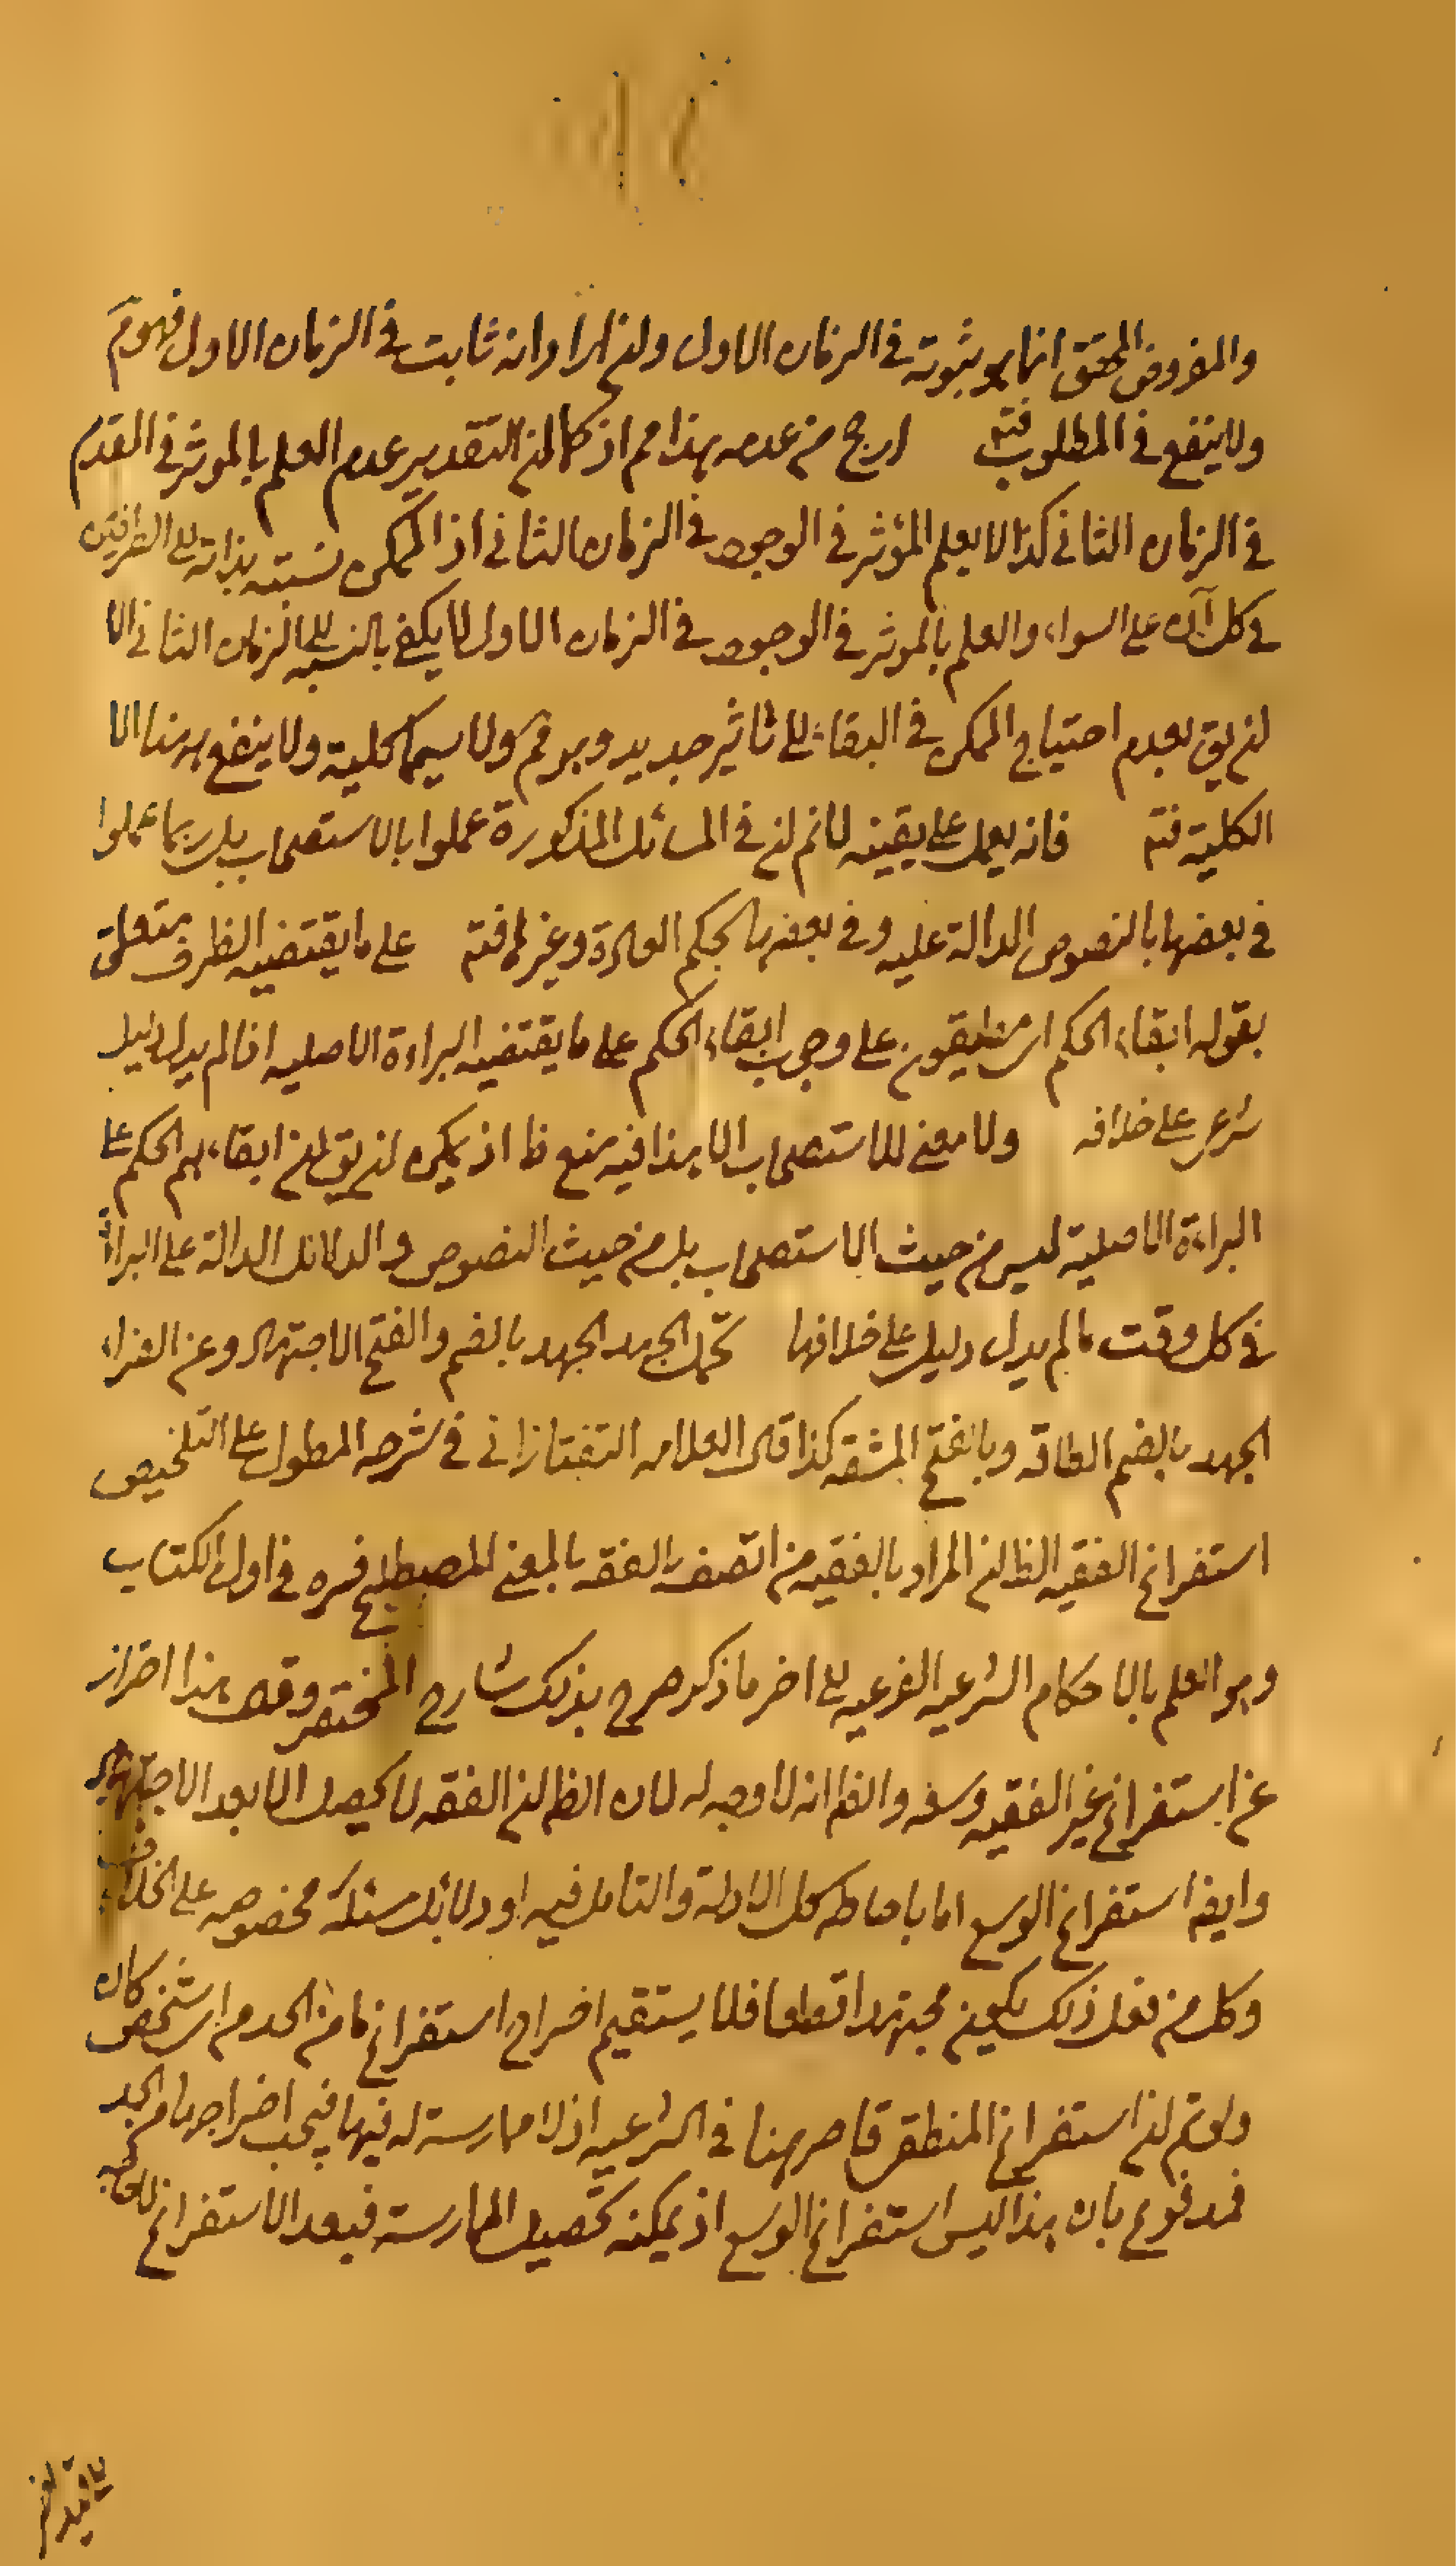 والمفروض المحقق انما هو ثبوته في الزمان الاول ولن اراد انه ثابت في الزمان الاول فهو مم
ولا ينفع في المطلوب فتم ارجح من عدمه هذا مم اذ كما لن التقدير عدم العلم بالموثر في العدم
في الزمان الثاني كذا لا يعلم المؤثر في الوجود في الزمان الثاني اذ الممكن نسبته بذاته الى الطرفين
في كل آن على السواء والعلم بالموثر في الوجود في الزمان الاول لا يكفي بالنسبه الى الزمان الثاني الا
لن يق بعدم احتياج الممكن في البقاء الى تاثير جديد وهو مم ولا سيما كلية ولا ينفع ههنا الا
الكلية فتم فانه يعمل على يقينه لا نم لن في المسائل المذكورة عملوا بالاستصحاب بل ربما عملوا
في بعضها بالنصوص الدالة عليه وفي بعضها بحكم العادة وغيرها فتم على ما يقتضيه الظرف متعلق
بقوله ابقاء الحكم اي منطبقون على وجوب ابقاء الحكم على ما يقتضيه البراءة الاصليه اذا لم يدل دليل
شرعي على خلافه ولا معنى للاستصحاب الا هذا فيه منع ظا اذ يمكن لن يق لن ابقاءهم الحكم على
البراءة الاصلية ليس من حيث الاستصحاب بل من حيث النصوص والدلائل الدالة على البراءة
في كل وقت ما لم يدل دليل على خلافها تحمل الجهد الجهد بالضم والفتح الاجتهاد وعن الفراء
الجهد بالضم الطاقه وبالفتح المشقه كذا قال العلامه التفتازاني في شرحه المطول على التلخيص
استفراغ الفقيه الظ لن المراد بالفقيه من اتصف بالفقه بالمعنى المصطلح فسره في اول الكتاب
وهو العلم بالاحكام الشرعيه الفرعيه الى اخر ما ذكر صرح بذلك شارح المختصر وقال هذا احتراز
عن استفراغ غير الفقيه وسعه والظ انه لا وجه له لان الظ لن الفقه لا يحصل الا بعد الاجتهاد
وايضا استفراغ الوسع اما باحاطه كل الادلة والتامل فيه او دلائل مسئلة مخصوصه على الخلاف
وكل من فعل ذلك يكون مجتهدا قطعا فلا يستقيم اخراج استفراغ ما من الحد من اي شخص كان
ولو تم لن استفراغ المنطقي قاصر ههنا في الشرعيه اذ لا ممارسة له فيها فيجب اخراجها من الحد
فمدفوع بان هذا ليس استفراغ الوسع اذ يمكنه تحصيل الممارسة فبعد الاستفراغ